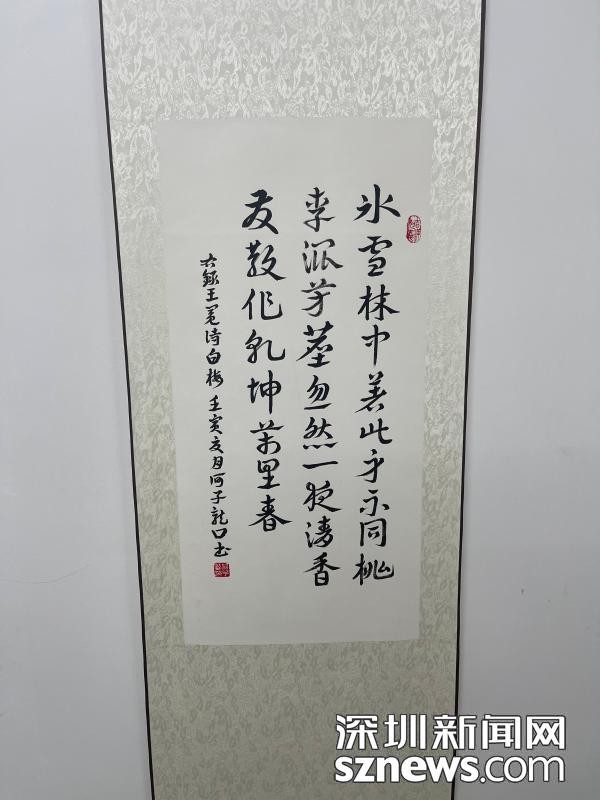 冰雪林中著此身不同桃
李混芳塵忽然一夜清香
發散作乾坤萬里春
右錄王冕詩白梅 壬寅 月 子龍 書
深圳新闻网
sznews.com